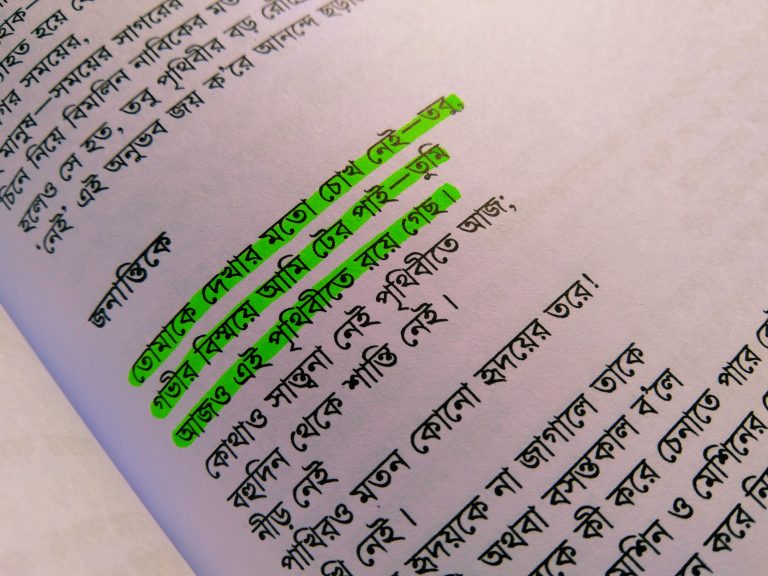 হাক—
াহত হয়ে
গর সময়ের,
মানুষ—সময়ের সাগরের
চিনে নিয়ে বিমলিন নাবিকের মত
হলেও সে হত, তবু পৃথিবীর বড় রৌদ্রে
‘নেই’ এই অনুভব জয় ক’রে আনন্দে ছড়া
জনান্তিকে
তোমাকে দেখার মতো চোখ নেই—তবু,
গভীর বিস্ময়ে আমি টের পাই—তুমি
আজও এই পৃথিবীতে রয়ে গেছ।
কোথাও সান্ত্বনা নেই পৃথিবীতে আজ;
বহুদিন থেকে শান্তি নেই।
নীড় নেই
পাখিরও মতন কোনো হৃদয়ের তরে!
নেই।
হৃদয়কে না জাগালে তাকে
অথবা বসন্তকাল ব’লে
কে কী করে চেনাতে পারে
মেশিন ও মেশিনের
করে